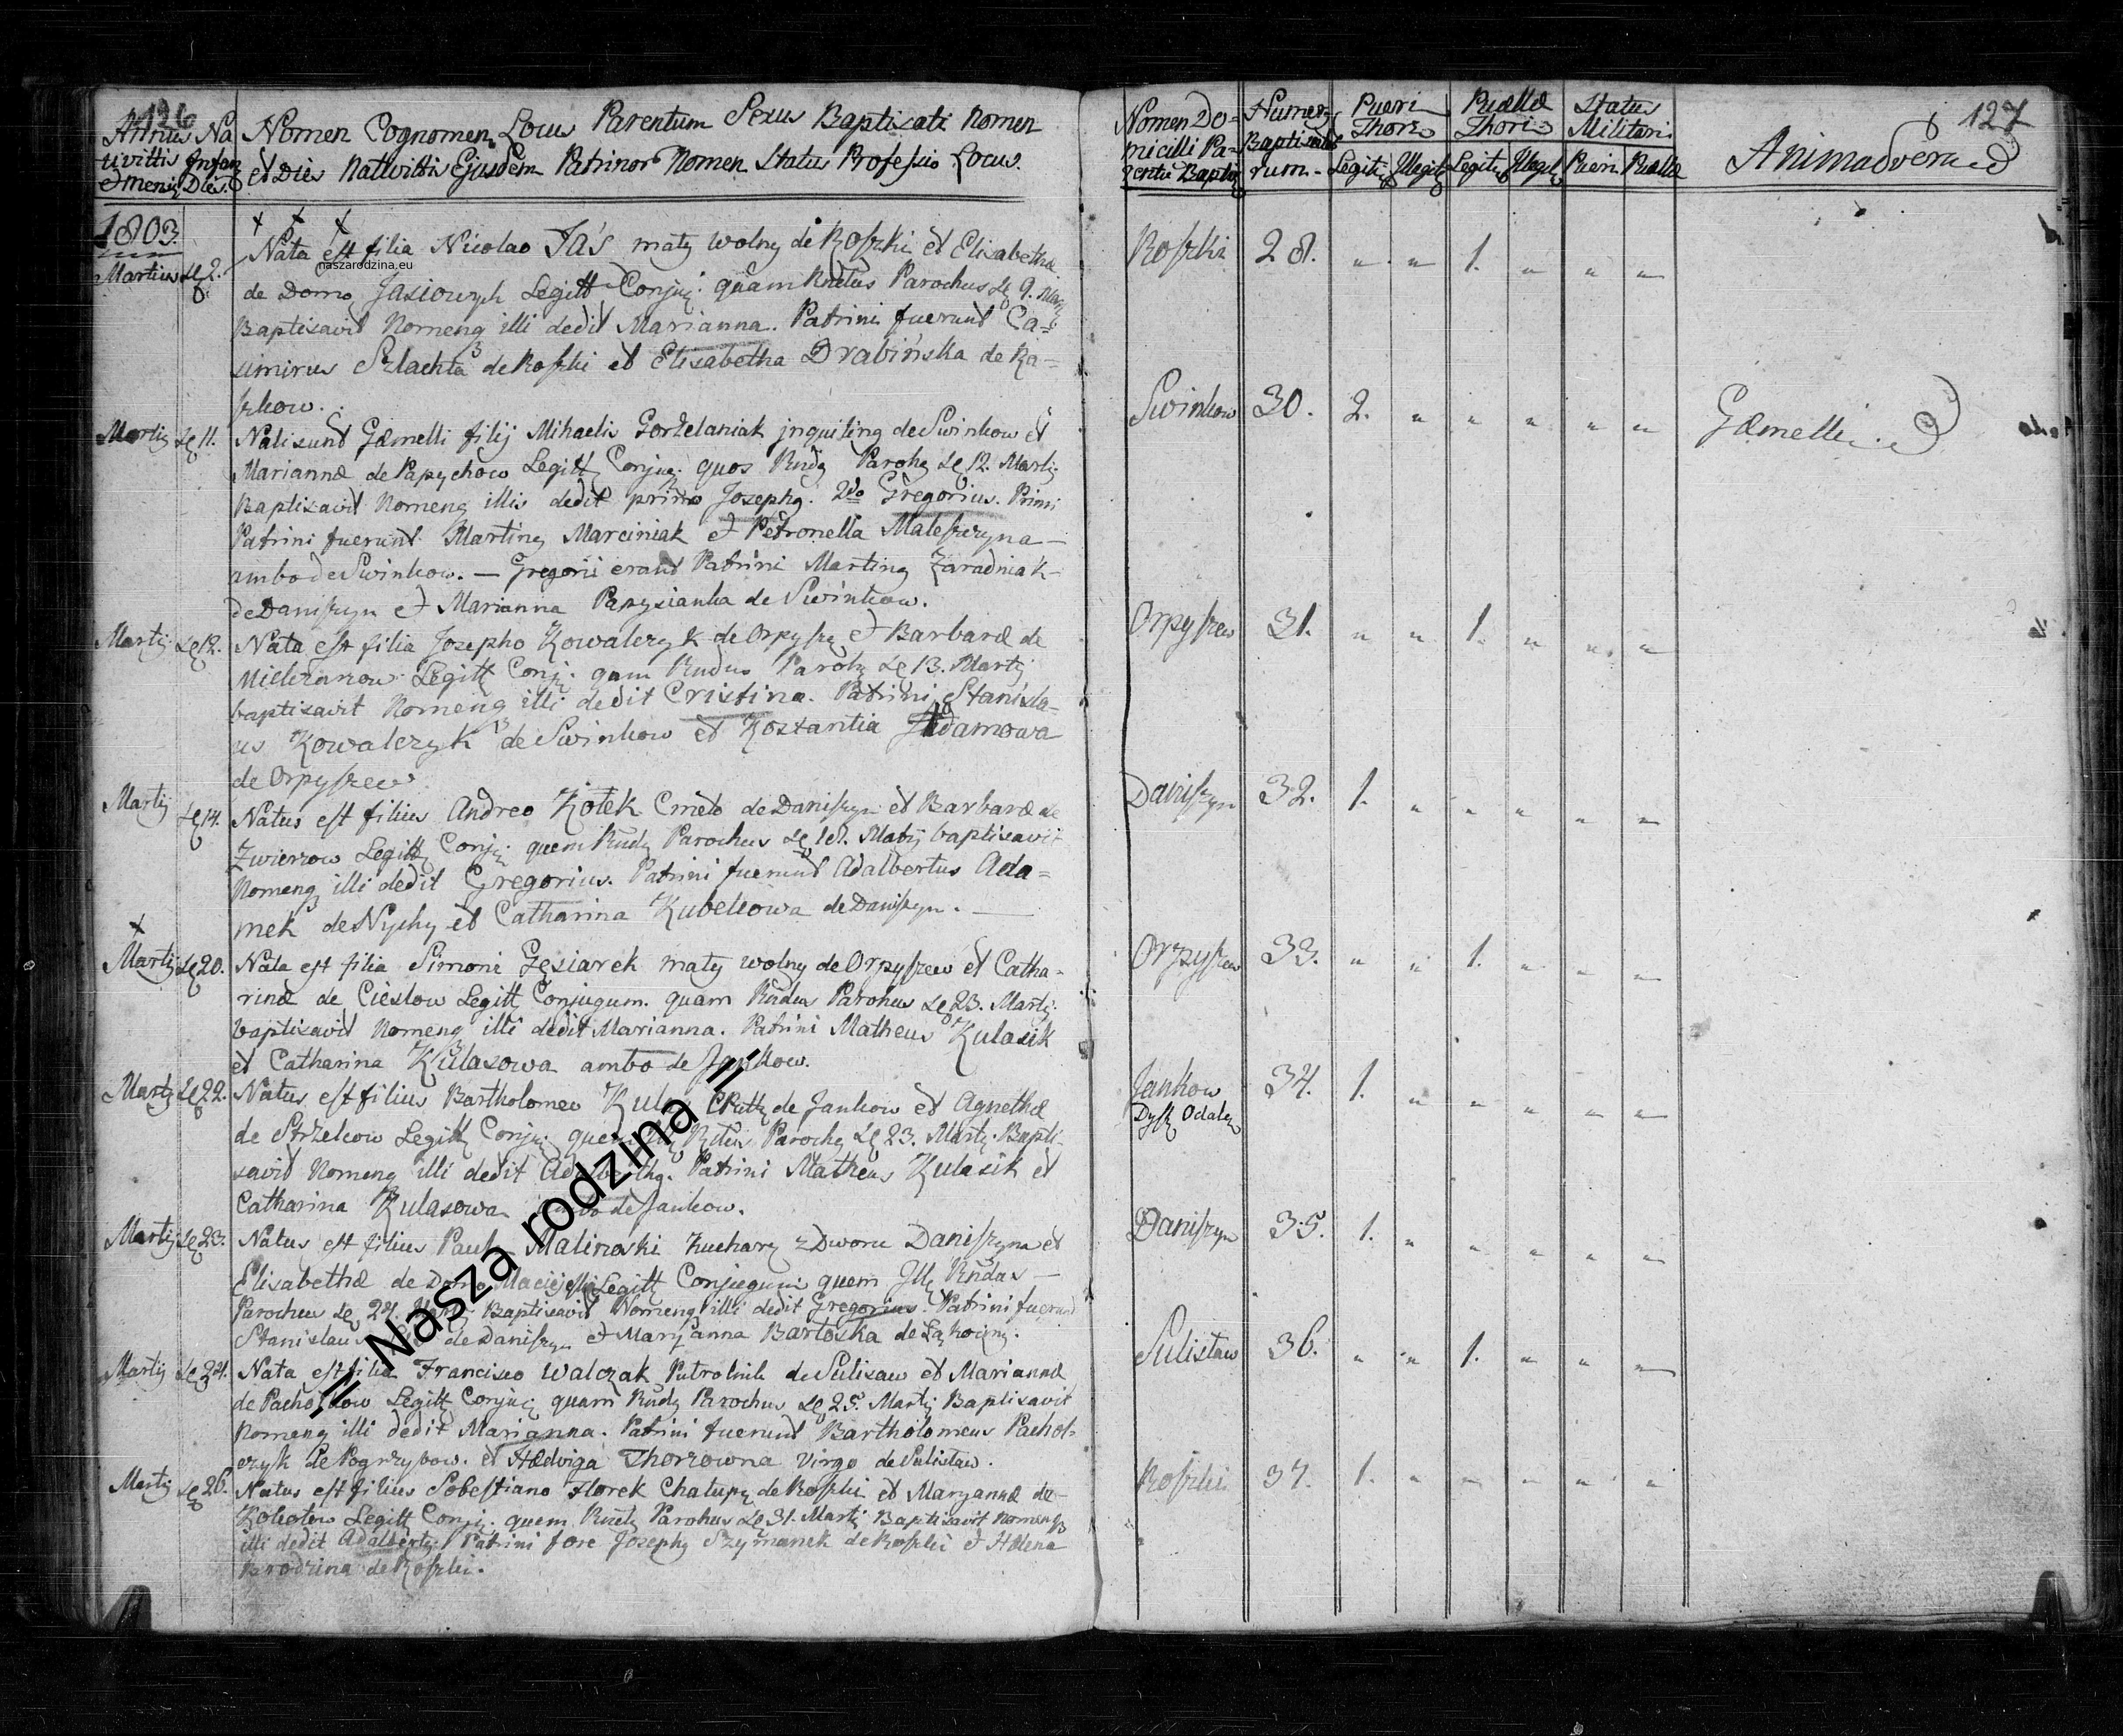 126
Annus Na
tivittis Infan
et Mensis Dies.
Nomen Cognomen, Locus Parentum Sexus Baptisati Nomen
et Dies Nativittis Ejusdem Patrinor Nomen Status Professio Locus.
1803.
Martius 2.
Nata est filia Nicolao Jaś mały wolny de Roszki et Elisabethæ
naszarodzina.eu
de Domo Jasiowych Legitt Conju: quam Parochus 9.
Baptisavit Nomenq illi dedit Marianna. Patrini fuerunt Ca=
simirus Szlachta de Roszki et Elisabetha Drabińska de Ra=
szkow.
Martij 11.
Nati sunt Gæmelli filij Mihaelis Gorzelaniak inquiling de Swinkow et
Mariannæ de Papychow Legitt Conjug: quos Parohq 12. Martij
Baptisavit Nomenq illis dedit primo Josephq. 2do Gregorius. Primi
Patrini fuerunt Martinq Marciniak et Petronella Maleszyna
ambo de Swinkow. — Gregorii erant Patrini Martinq Zaradniak
de Daniszyn et Marianna Papysianka de Swinkow.
Martij 12.
Nata est filia Josepho Kowalczyk de Orpysze et Barbaræ de
Legitt Conju: qam Rudus Parohq 13. Martij
baptisavit Nomenq illi dedit Cristina. Patrini Stanisla=
us Kowalczyk de Swinkow et Kostantia Adamowa
de Orpyszew
Martij 14.
Natus est filius Andreo Kotek Cmeto de Daniszyn et Barbaræ de
Zwierzow Legitt Conju: quem Parochus 18. Martij baptisavit
Nomenq illi dedit Gregorius. Patrini fuerunt Adalbertus Ada=
mek de Nychy et Catharina Kubekowa de Daniszyn.
Martij 20.
Nata est filia Simoni Gęsiarek mały wolny de Orpyszew et Catha=
rinæ de Cieslow Legitt Conjugum. quam Parohus 23. Martij.
baptisavit Nomenq illi dedit Marianna. Patrini Matheus Kulasik
et Catharina Kulasowa ambo de Jankow.
Martij 22.
Natus est filius Bartholomeo de Jankow et Agnethæ
de Strzelcow Legitt Conju: Parochq 23. Martij. Bapti=
savit Nomenq illi dedit Patrini Matheus Kulasik et
Catharina Kulasowa ambo de Jankow.
Martij 23.
Natus est filius Paulo Malinoski Kucharz z Dworu Daniszyna et
Elisabethæ de Domo Legitt Conjugum quem
Parochus 27. Baptisavit Nomenq illi dedit Gregorius. Patrini fuerunt
Stanislaus de Daniszyn et Maryanna Bartoska de
Martij 24.
Nata est filia Francisco Walczak de Sulisaw et Mariannæ
Legitt Conju: quam Parochus 25. Martij Baptisavit
Nomenq illi dedit Marianna. Patrini fuerunt Bartholomeus Pachol=
czyk de Pogrzybow. et Hædwiga Thorzowna Virgo de Sulistaw.
Martij 26.
Natus est filius Sobestiano Florek Chałupq de Roszki et Maryannæ de
Legitt Conju: quem Parohus 31. Martij Baptisavit Nomenq
illi dedit Adalbertq. Patrini fore Josephq Szymanek de Roszki et Hælena
Brodzina de Roszki.
"Nasza rodzina"
127
Nomen Do=
micilli Pa=
rentu Baptis
Numerq
Baptisato
rum.
Pueri
Thori
Legiti Illegit
Puellæ
Thori
Legit Illegit
Status
Militari
Pueri Puellæ
Animadversio
Roszki 28. " " 1. " " "
Swinkow 30. 2. " " " " " Gæmelli.
Orpyszew 31. " " 1. " " "
Daniszyn 32. 1. " " " " "
Orpyszew 33. " " 1. " " "
Jankow 34. 1. " " " " "
Daniszyn 35. 1. " " " " "
Sulistaw 36. " " 1. " " "
Roszki 37. 1. " " " " "